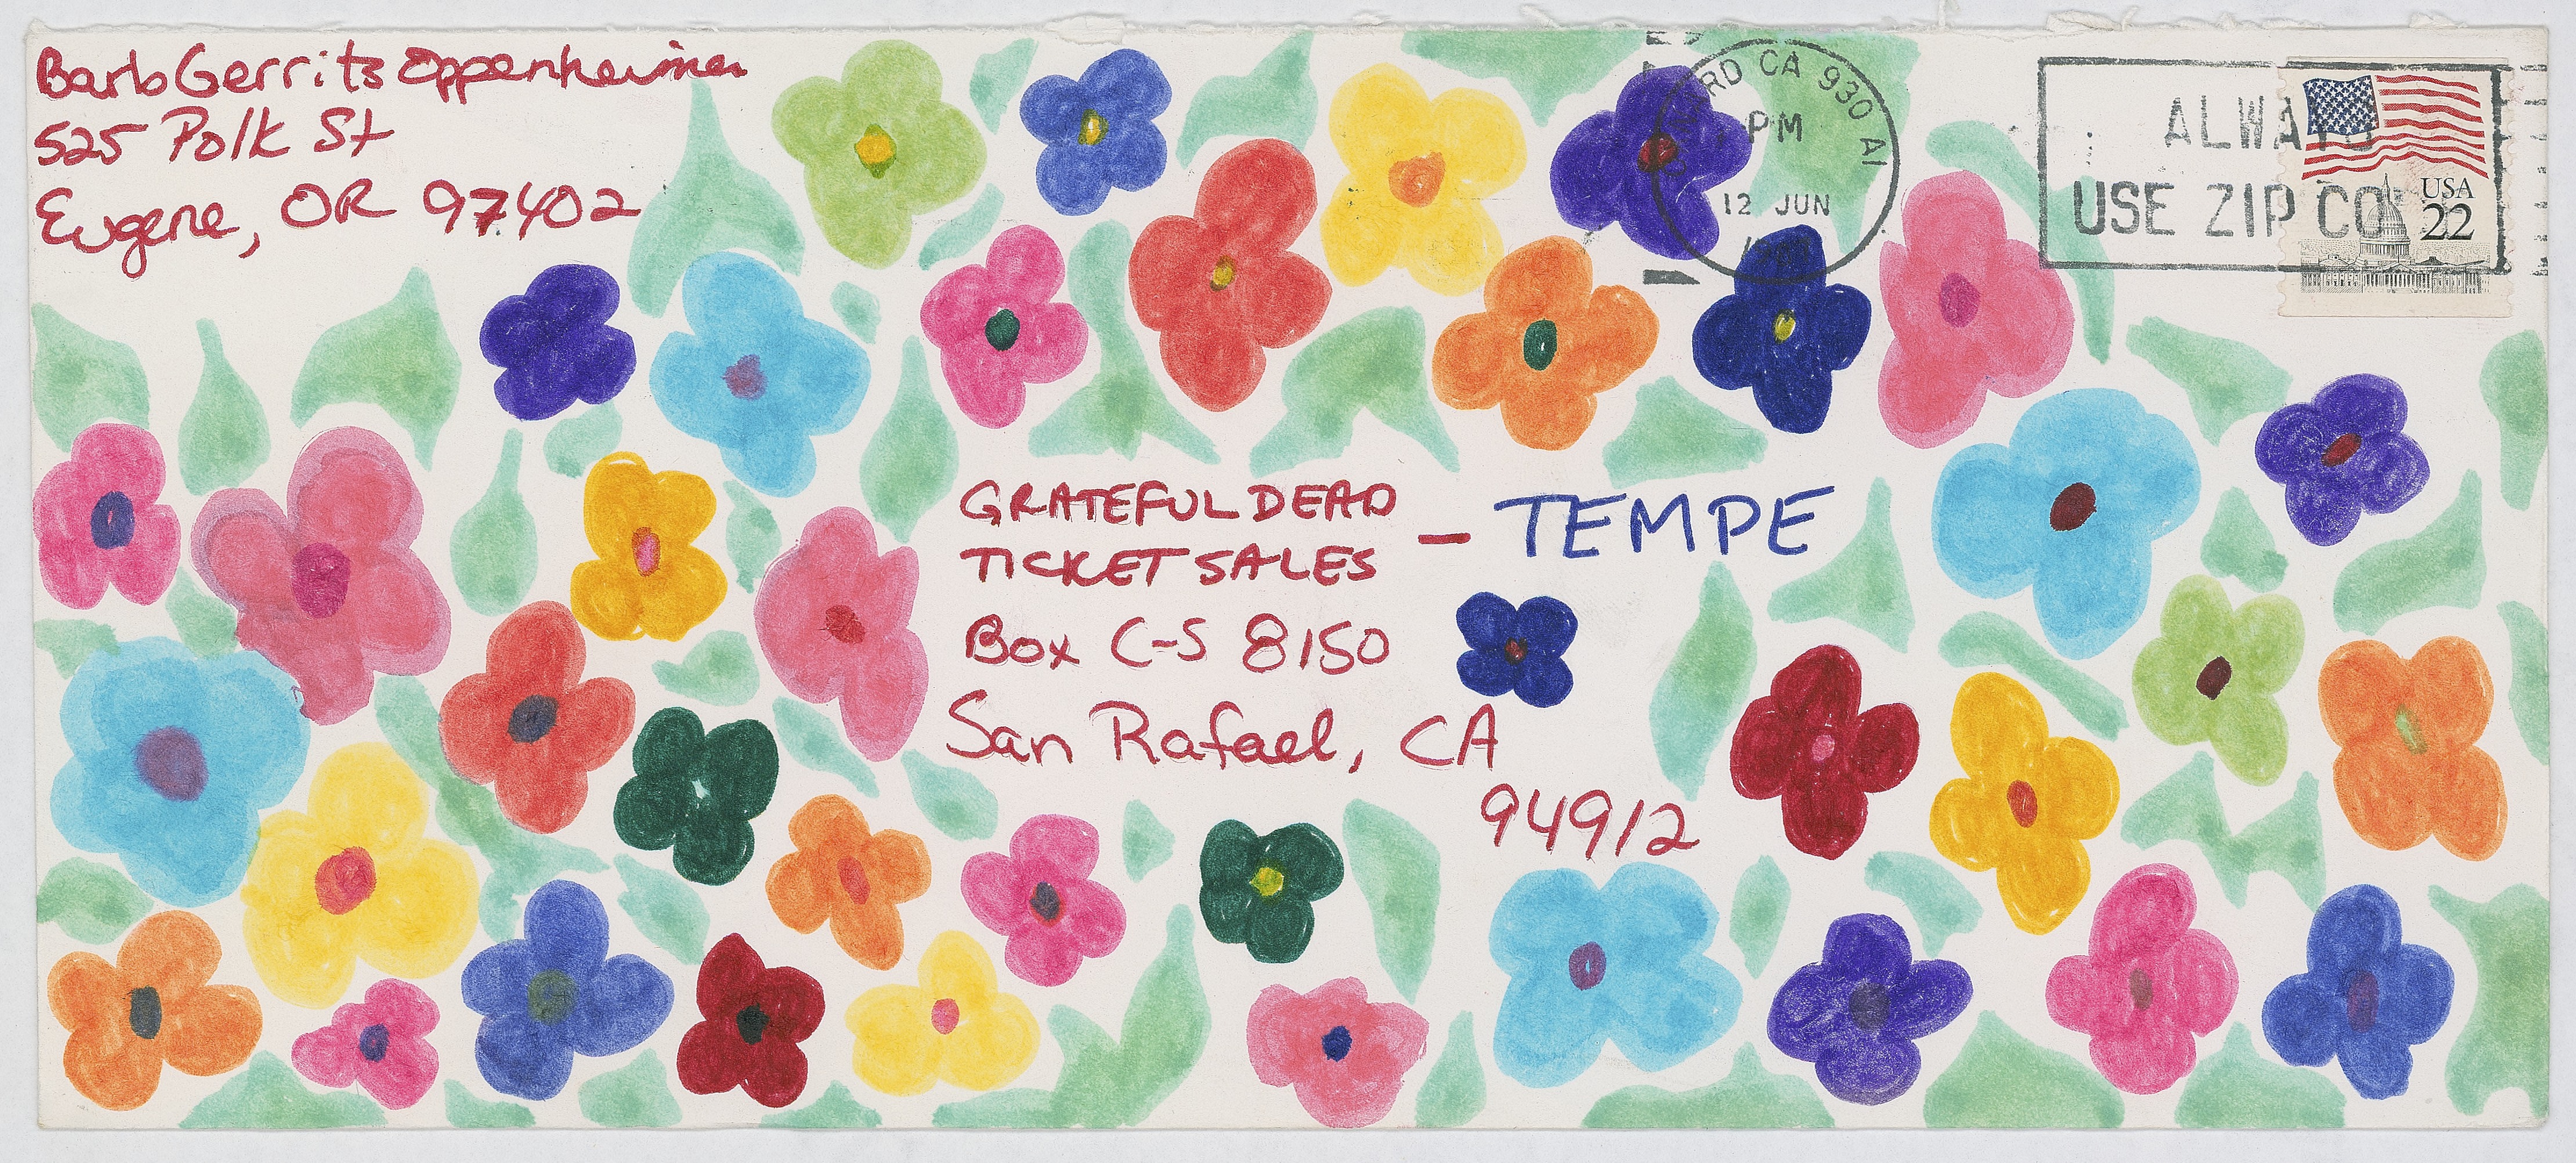 Barb Gerrits Oppenheimer
525 Polk St
Eugene, OR 97402
RD CA 930 A1
PM
12 JUN
ALWAYS
USE ZIP CO
USA
22
GRATEFUL DEAD
TICKET SALES
— TEMPE
Box C-S 8150
San Rafael, CA
94912